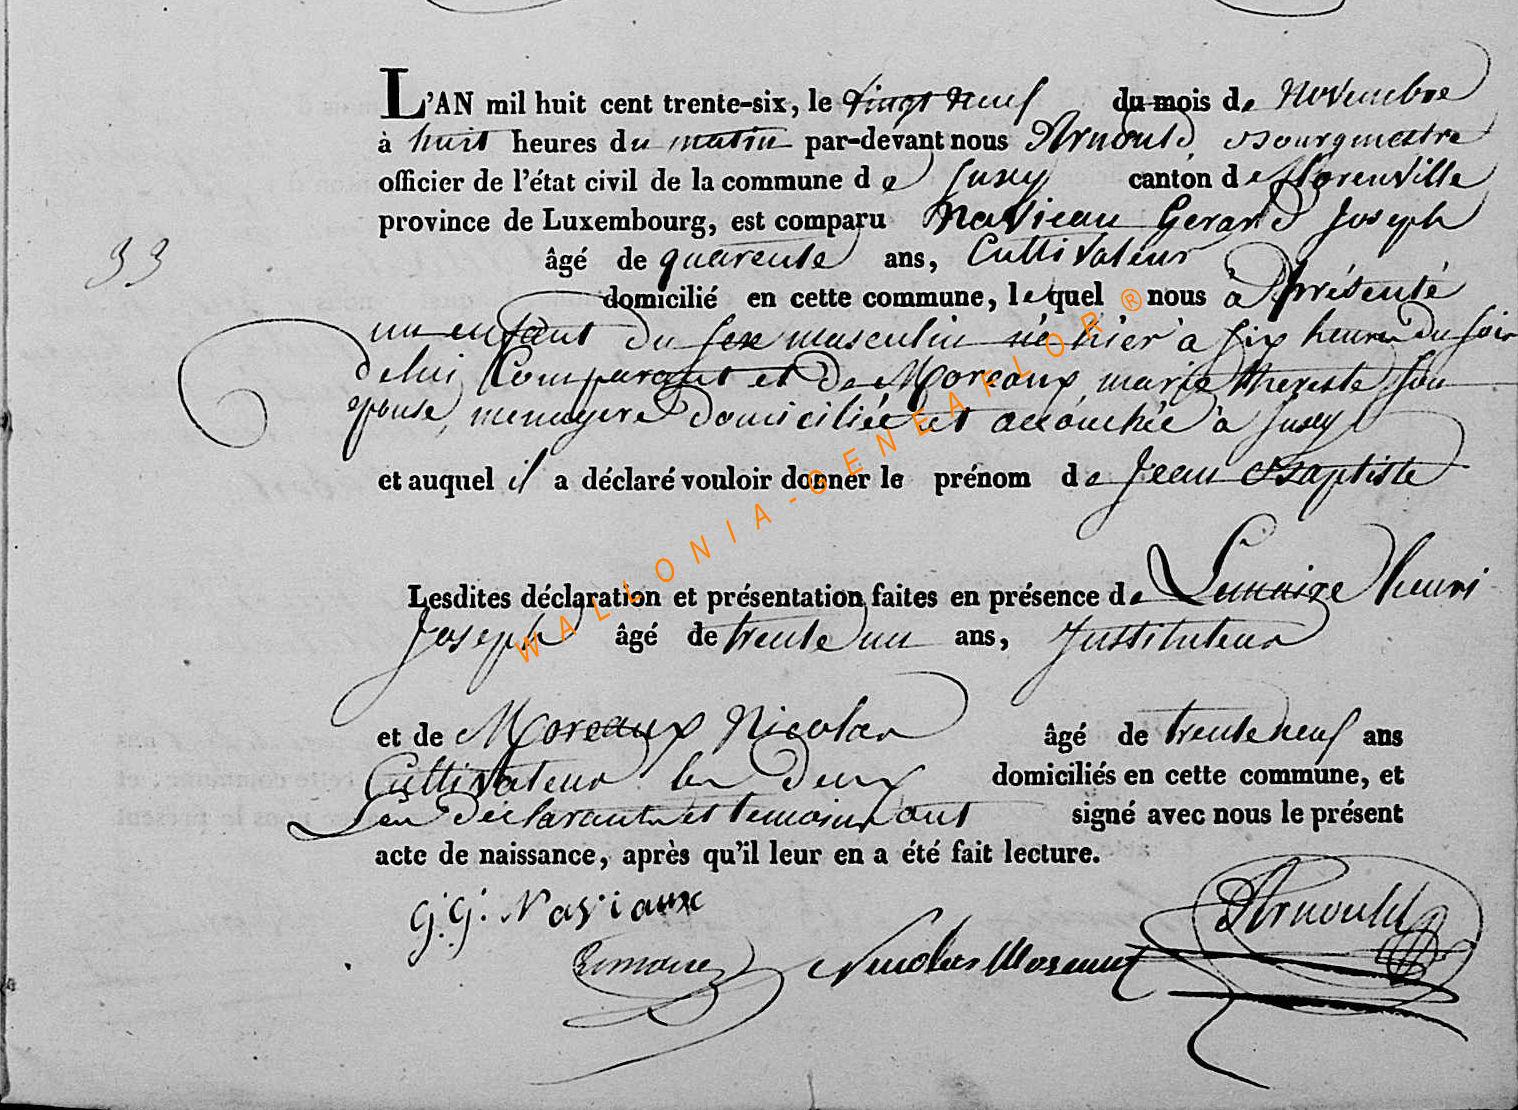 L'AN mil huit cent trente-six, le vingt neuf du mois de novembre
à huit heures du matin par-devant nous Arnould, Bourgmestre
officier de l'état civil de la commune de Jusey canton de florenville
province de Luxembourg, est comparu Navieau Gerard Joseph
33 âgé de quarente ans, Cultivateur
domicilié en cette commune, lequel nous à présenté
un enfant du sexe masculin né hier à six heures du soir
de lui Comparant et de Moreaux marie therese son
epouse, menagere domiciliée et accouchée à Jusey
et auquel il a déclaré vouloir donner le prénom de Jean Baptiste
Lesdites déclaration et présentation faites en présence de Lemaire henri
Joseph âgé de trente un ans, Instituteur
et de Moreaux Nicolas âgé de trente neuf ans
Cultivateur les deux domiciliés en cette commune, et
Les déclarant et temoins ont signé avec nous le présent
acte de naissance, après qu'il leur en a été fait lecture.
G: G: Naviaux
Arnould
Lemaire Nicolas Moreaux
WALLONIA-GENEAFLOR®